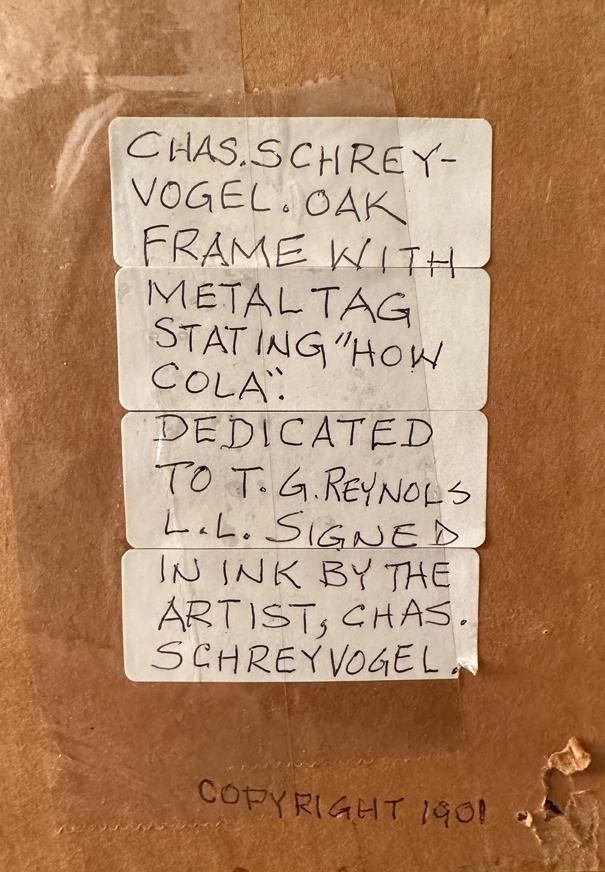 CHAS. SCHREY-
VOGEL. OAK
FRAME WITH
METAL TAG
STATING "HOW
COLA".
DEDICATED
TO T. G. REYNOLS
L.L. SIGNED
IN INK BY THE
ARTIST, CHAS.
SCHREYVOGEL.
COPYRIGHT 1901